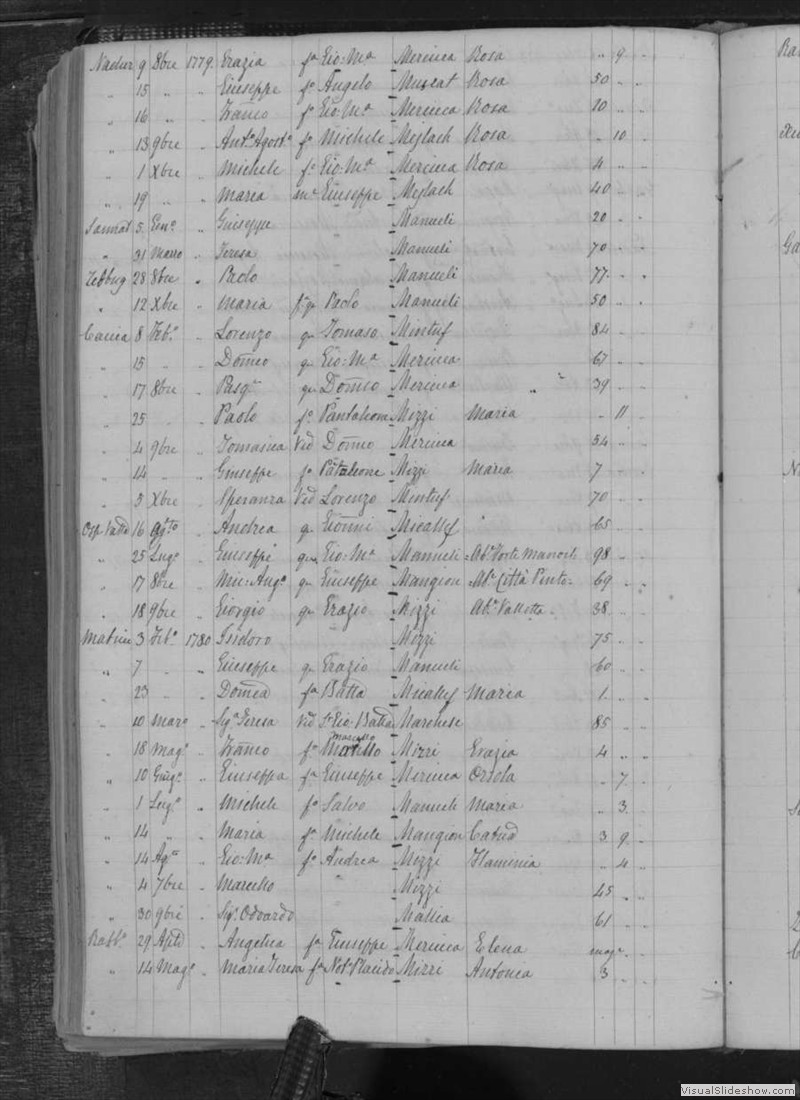 Nadur 9 8bre 1779. Grazia fa Gio: Ma Mercieca Rosa " 9 "
" 15 " " Giuseppe fo Angelo Muscat Rosa 50 " "
" 16 " " Franco fo Gio: Ma Mercieca Rosa 10 " "
" 13 9bre " Anto Agosto fo Michele Mejlach Rosa " 10 "
" 1 Xbre " Michele fo Gio: Ma Mercieca Rosa 4 " "
" 19 " " Maria Mejlach 40 " "
Sannat 5 " Giuseppe Manueli 20 " "
" 31 Marzo " Teresa Manueli 70 " "
Zebbug 28 8bre " Paolo Manueli 77 " "
" 12 Xbre " Maria Paolo Manueli 50 " "
Caccia 8 Febo " Lorenzo qm Tomaso Mintuf 84 " "
" 15 " " Domco qm Gio: Ma Mercieca 67 " "
" 17 8bre " Pasqe qm Domco Mercieca 39 " "
" 25 " " Paolo fo Pantaleone Mizzi Maria " 11 "
" 4 9bre " Tomasica Vid Domco Mercieca 54 " "
" 14 " " Giuseppe fo Pataleone Mizzi Maria 7 "
" 3 Xbre " Speranza Vid Lorenzo Mintuf 70 " "
16 Agto " Andrea qm Gionni Micallef 65 " "
" 25 Lugo " Giuseppe qm Gio: Ma Manueli 98 " "
" 17 8bre " Mic: Ango qm Giuseppe Mangion Abe Città Pinto 69 " "
" 18 9bre " Giorgio qm Grazio Mizzi Abe Valletta 38 " "
Matrice 3 Febo 1780 Isidoro Mizzi 75 " "
" 7 " " Giuseppe qm Grazio Manueli 60 " "
" 23 " " Domca fa Batta Micallef Maria 1 " "
" 10 Marzo " Sga Teresa Vid Sr Gio: Batta Marchese 85 " "
" 18 Mago " Franco fo Marcello Mizzi Grazia 4 " "
" 10 Giugo " Giuseppa fa Giuseppe Mercieca Orsola " 7 "
" 1 Lugo " Michele fo Salvo Manueli Maria " 3 "
" 14 " " Maria fa Michele Mangion Catnd 3 9 "
" 14 Ago " Gio: Ma fo Andrea Mizzi Flaminia " 4 "
" 4 7bre " Marcello " Mizzi 45 " "
" 30 9bre " Sigr Odoardo Mallia 61 " "
Rabbo 29 Aple " Angelica fa Giuseppe Mercieca Elena
" 14 Mago " Maria Teresa fa Notr Placido Mizzi Antonia 3 " "
VisualSlideshow.com